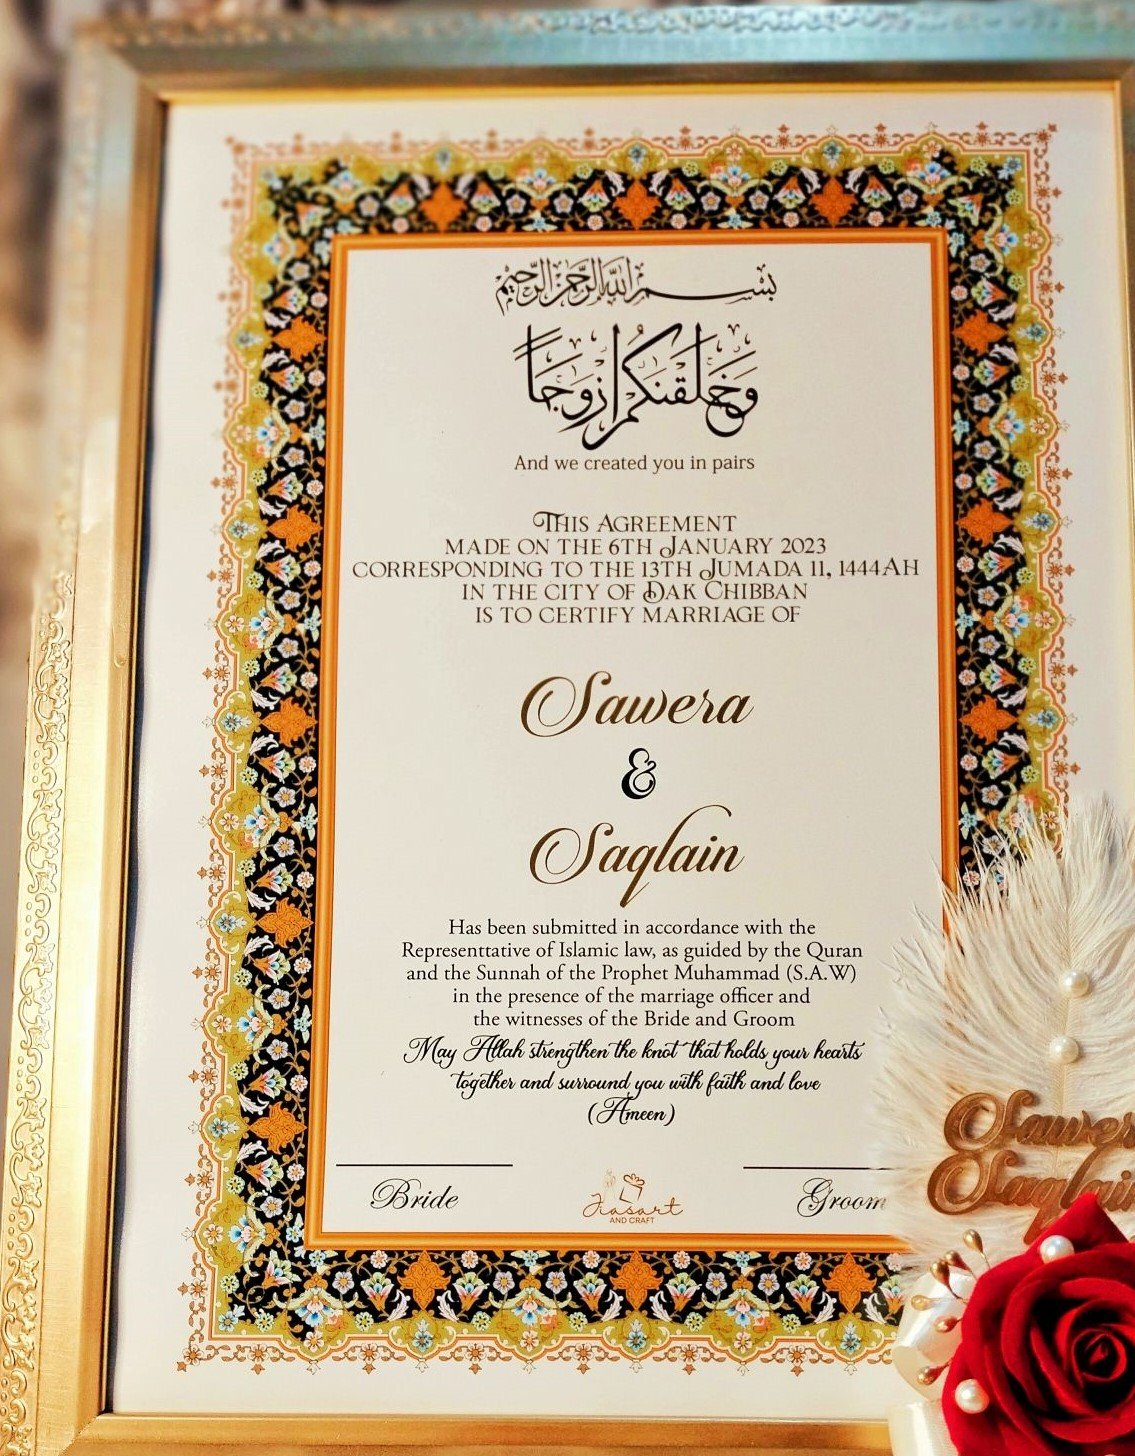 بسم الله الرحمن الرحيم
وخلقنكم ازوجا
And we created you in pairs
THIS AGREEMENT
MADE ON THE 6TH JANUARY 2023
CORRESPONDING TO THE 13TH JUMADA 11, 1444AH
IN THE CITY OF DAK CHIBBAN
IS TO CERTIFY MARRIAGE OF
Sawera
&
Saqlain
Has been submitted in accordance with the
Representtative of Islamic law, as guided by the Quran
and the Sunnah of the Prophet Muhammad (S.A.W)
in the presence of the marriage officer and
the witnesses of the Bride and Groom
May Allah strengthen the knot that holds your hearts
together and surround you with faith and love
(Ameen)
Bride
Groom
AND CRAFT
Sawer
Saqlain